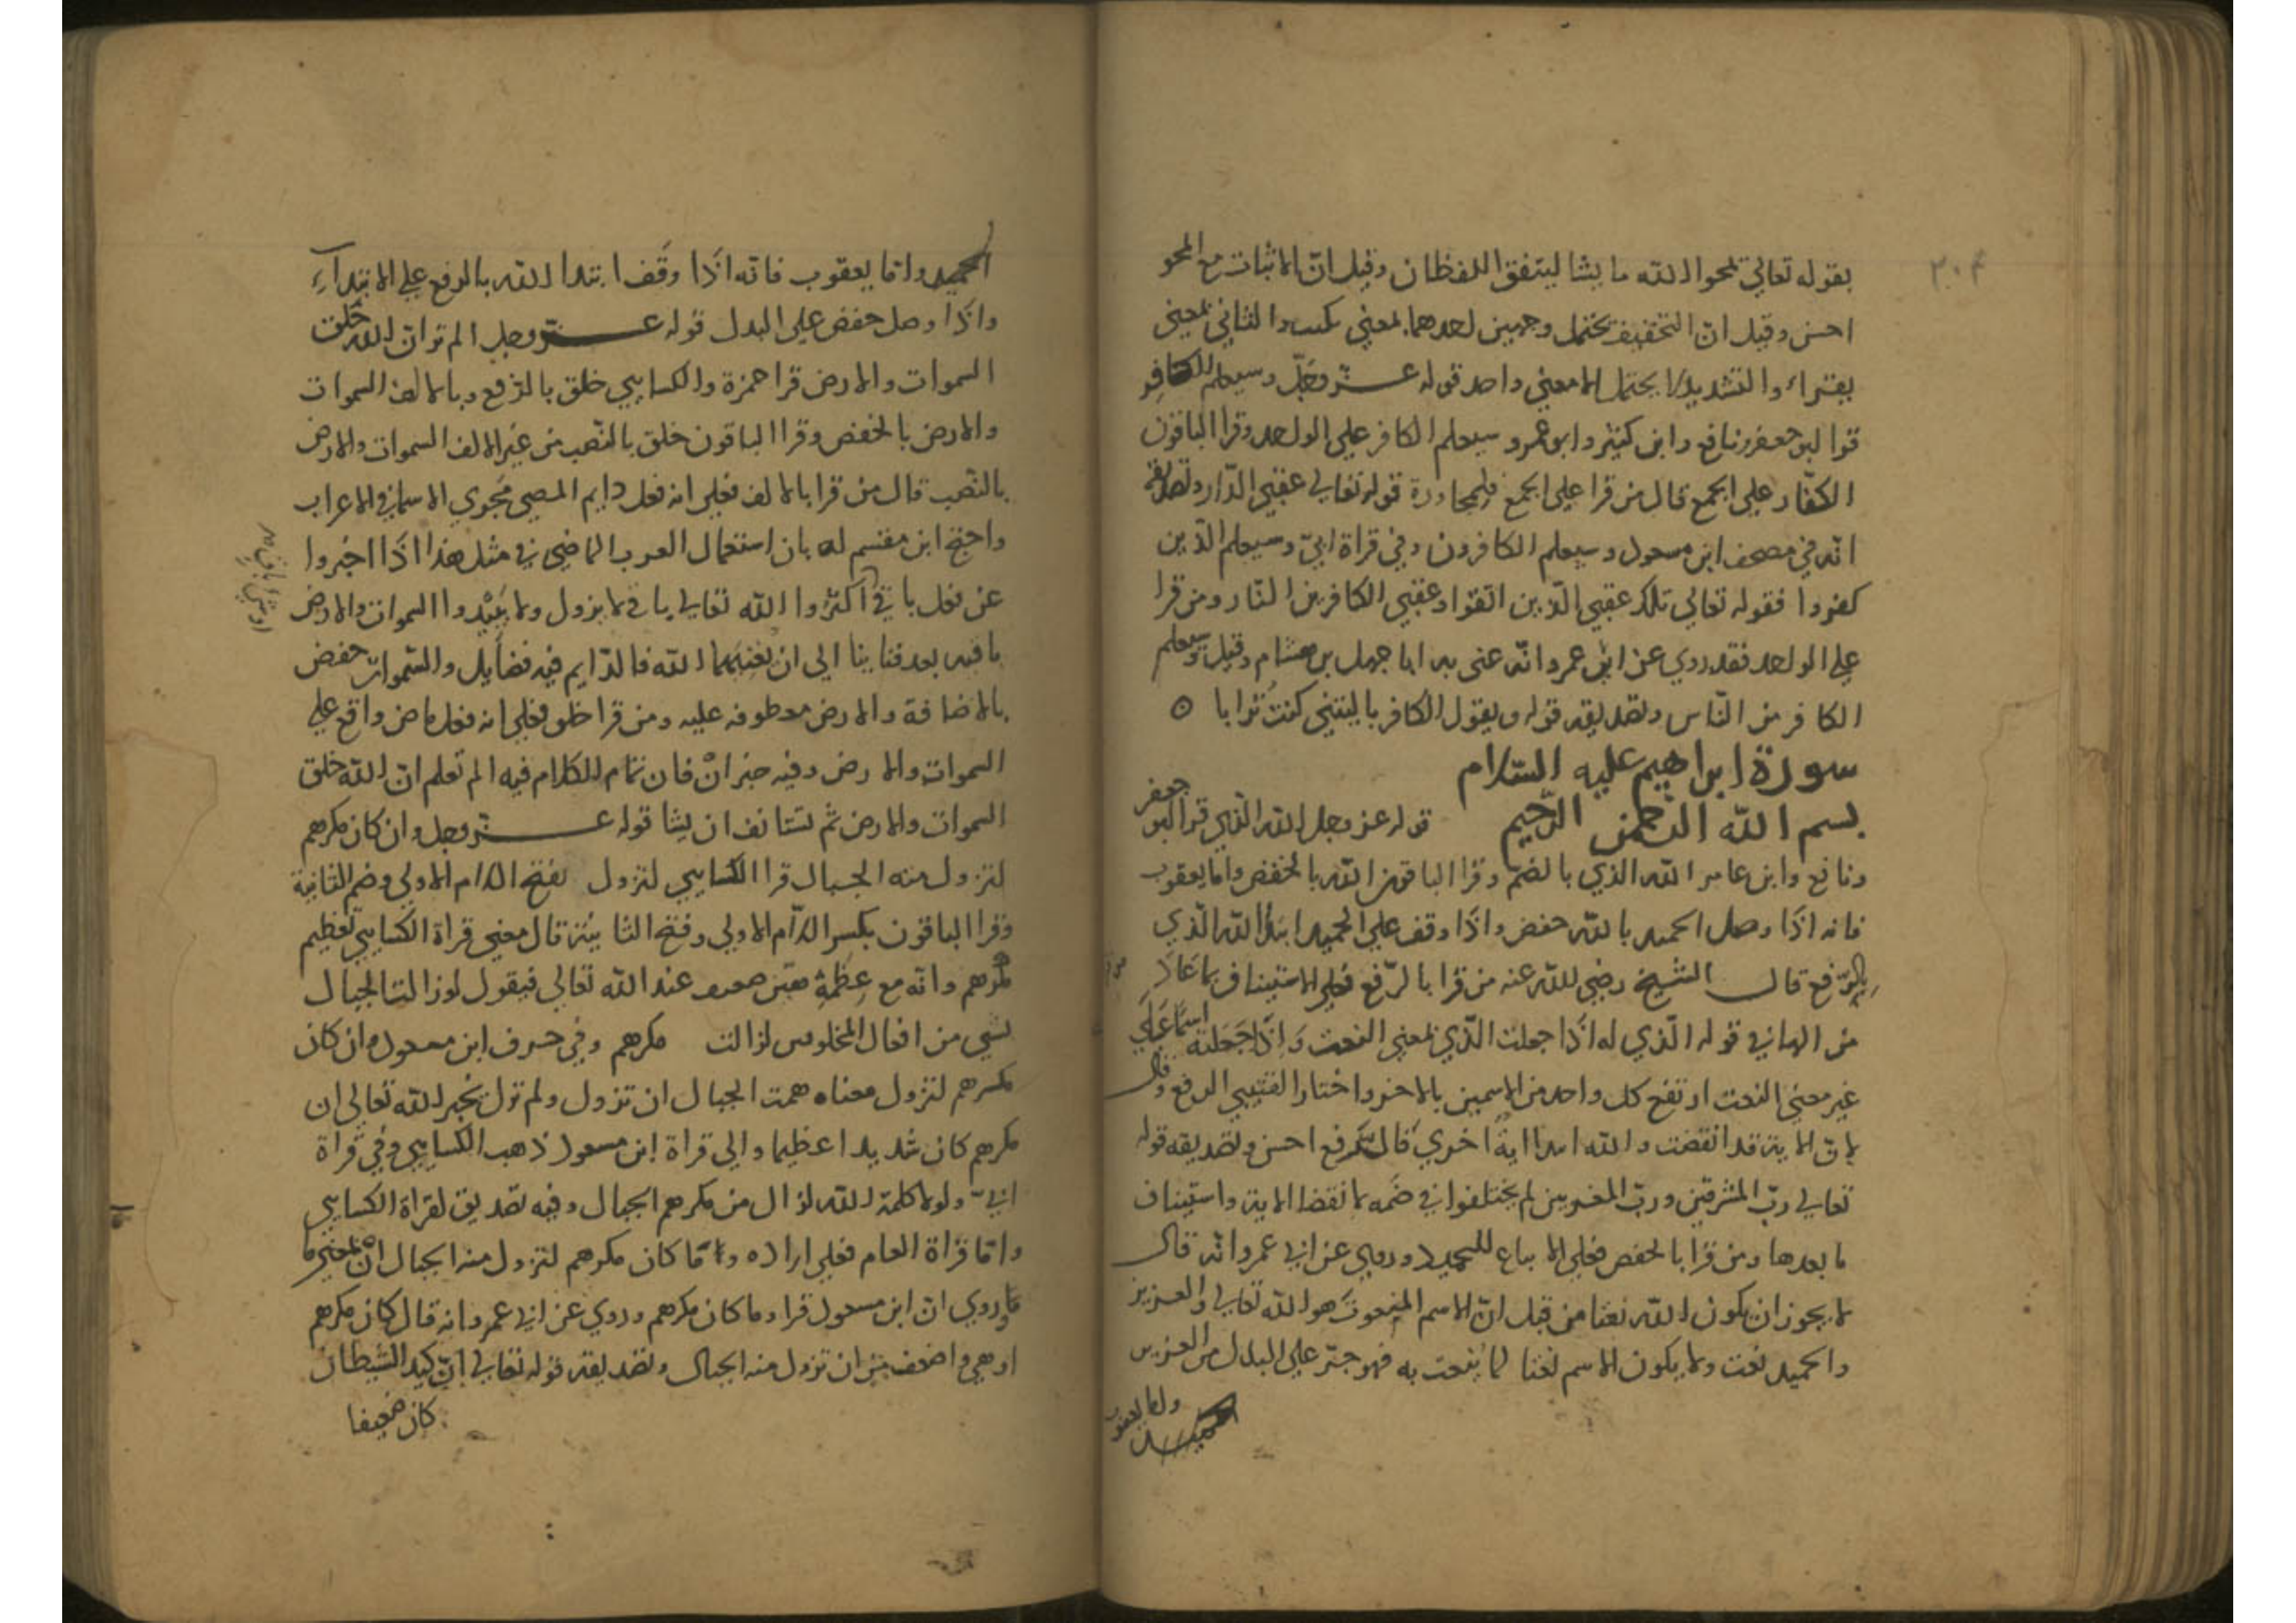 ٢٠٤
بقوله تعالى يمحوا الله ما يشا ليتفق اللفظان وقيل انّ الاثبات مع المحو
احسن وقيل انّ التخفيف يحتمل وجهين احدهما بمعني يكتب والثاني بمعني
يقراء والتشديد لا يحتمل الا معني واحد قوله عزّ وجلّ وسيعلم الكافر
قرا ابو جعفر ونافع وابن كثير وابو عمرو سيعلم الكافر علي الواحد وقرا الباقون
الكفّار علي الجمع قال من قرا علي الجمع فلمجاورة قوله تعالي عقبي الدّار وتصديقه
انّه في مصحف ابن مسعود وسيعلم الكافرون وفي قراة ابيّ وسيعلم الذين
كفروا فقوله تعالي تلك عقبي الّذين اتّقوا وعقبي الكافرين النّار ومن قرا
علي الواحد فقد روي عن ابي عمرو انّه عنى به ابا جهل بن هشام وقيل وسيعلم
الكافر من النّاس وتصديقه قوله ويقول الكافر يا ليتني كنتُ ترابا ٥
سورة ابراهيم عليه السّلام
بسم الله الرّحمن الرّحيم قوله عز وجل الله الّذي قرا ابو جعفر
ونافع وابن عامر الله الذي بالضّم وقرا الباقون الله بالخفض وامّا يعقوب
فانه اذَا وصل الحميد بالله خفض واذَا وقف علي الحميد ابتدأ الله الّذي
بالرّفع قال الشّيخ رضي الله عنه من قرا بالرّفع فعلي الاستيناف بما عاد
من الها في قوله الّذي له اذَا جعلت الّذي بمعني النعت وَاذَا جَعَلته اسماً علي
غير معني النعت ارتفع كل واحد من الاسمين بالاخر واختار القتيبي الرفع وقال
لانّ الاية قد انقضت والله ابتدا ايةً اخريَ قال فالرفع احسن وتصديقه قوله
تعالي ربّ المشرقين وربّ المغربين لم يختلفوا في ضمّه لانقضا الاية واستيناف
ما بعدها ومن قرا بالخفض فعلي الاتباع للحميد وروي عن ابي عمرو انّه قال
لا يجوز ان يكون الله نعتا من قبل انّ الاسم المنعوتَ هو الله تعالي والعزيز
والحميد نعت ولا يكون الاسم نعتا لما يُنعت به فهو جرّ علي البدل من العزيز
الحميد
واما يعقوب
الحميد وامّا يعقوب فانّه اذَا وقَف ابتدا الله بالرفع علي الابتداءِ
واذَا وصل خفض علي البدل قوله عزّ وجل الم تر انّ الله خلق
السموات والارض قرا حمزة والكسايي خلق بالرّفع وبالالف السموات
والارض بالخفض وقرا الباقون خلق بالنّصب من غير الالف السموات والارض
بالنّصب قال من قرا بالالف فعلي انه فعل دايم المضي مَجري الاسما في الاعراب
واحتجّ ابن مقسم له بان استعمال العرب الماضي في مثل هذا اذَا اخبروا
عن فعل باقٍ اكثر والله تعالي باق لا يزول ولا يَبيد والسموات والارض
باقيه بعد فناينا الي ان يُفنيهما الله فالدّايم فيه فضايل والسّموات خفض
بالاضافة والارض معطوفه عليه ومن قرا خلق فعلي انه فعل ماض واقع علي
السموات والارض وفيه خبر انّ فان تمام الكلام فيه الم تعلم انّ الله خلق
السموات والارض ثم تستانف ان يشا قوله عزّ وجل وان كان مكرهم
لتزول منه الجبال قرا الكسايي لتزول بفتح اللام الاولي وضم الثانية
وقرا الباقون بكسر اللّام الاولي وفتح الثانية قال معني قراة الكسايي تعظيم
مكرهم وانّه مع عِظَمِهِ عند الله تعالي فيقول لو زالت الجبال
لشي من افعال المخلوقين لزالت مكرهم وفي حرف ابن مسعود وان كان
مكرهم لتزول معناه همت الجبال ان تزول ولم تزل يُخبر الله تعالي ان
مكرهم كان شديدا عظيما والي قراة ابن مسعود ذهب الكسايي وفي قراة
ابيّ ولولا كلمة الله لزال من مكرهم الجبال وفيه تصديق لقراة الكسايي
وامّا قراة العام فعلي اراده وما كان مكرهم لتزول منه الجبال انْ بمعني ما
وروي انّ ابن مسعود قرا وما كان مكرهم وروي عن ابي عمرو انه قال كان مكرهم
اوهي واضعف من ان تزول منه الجبال وتصديقه قوله تعالي انّ كيد الشّيطان
كان ضعيفا